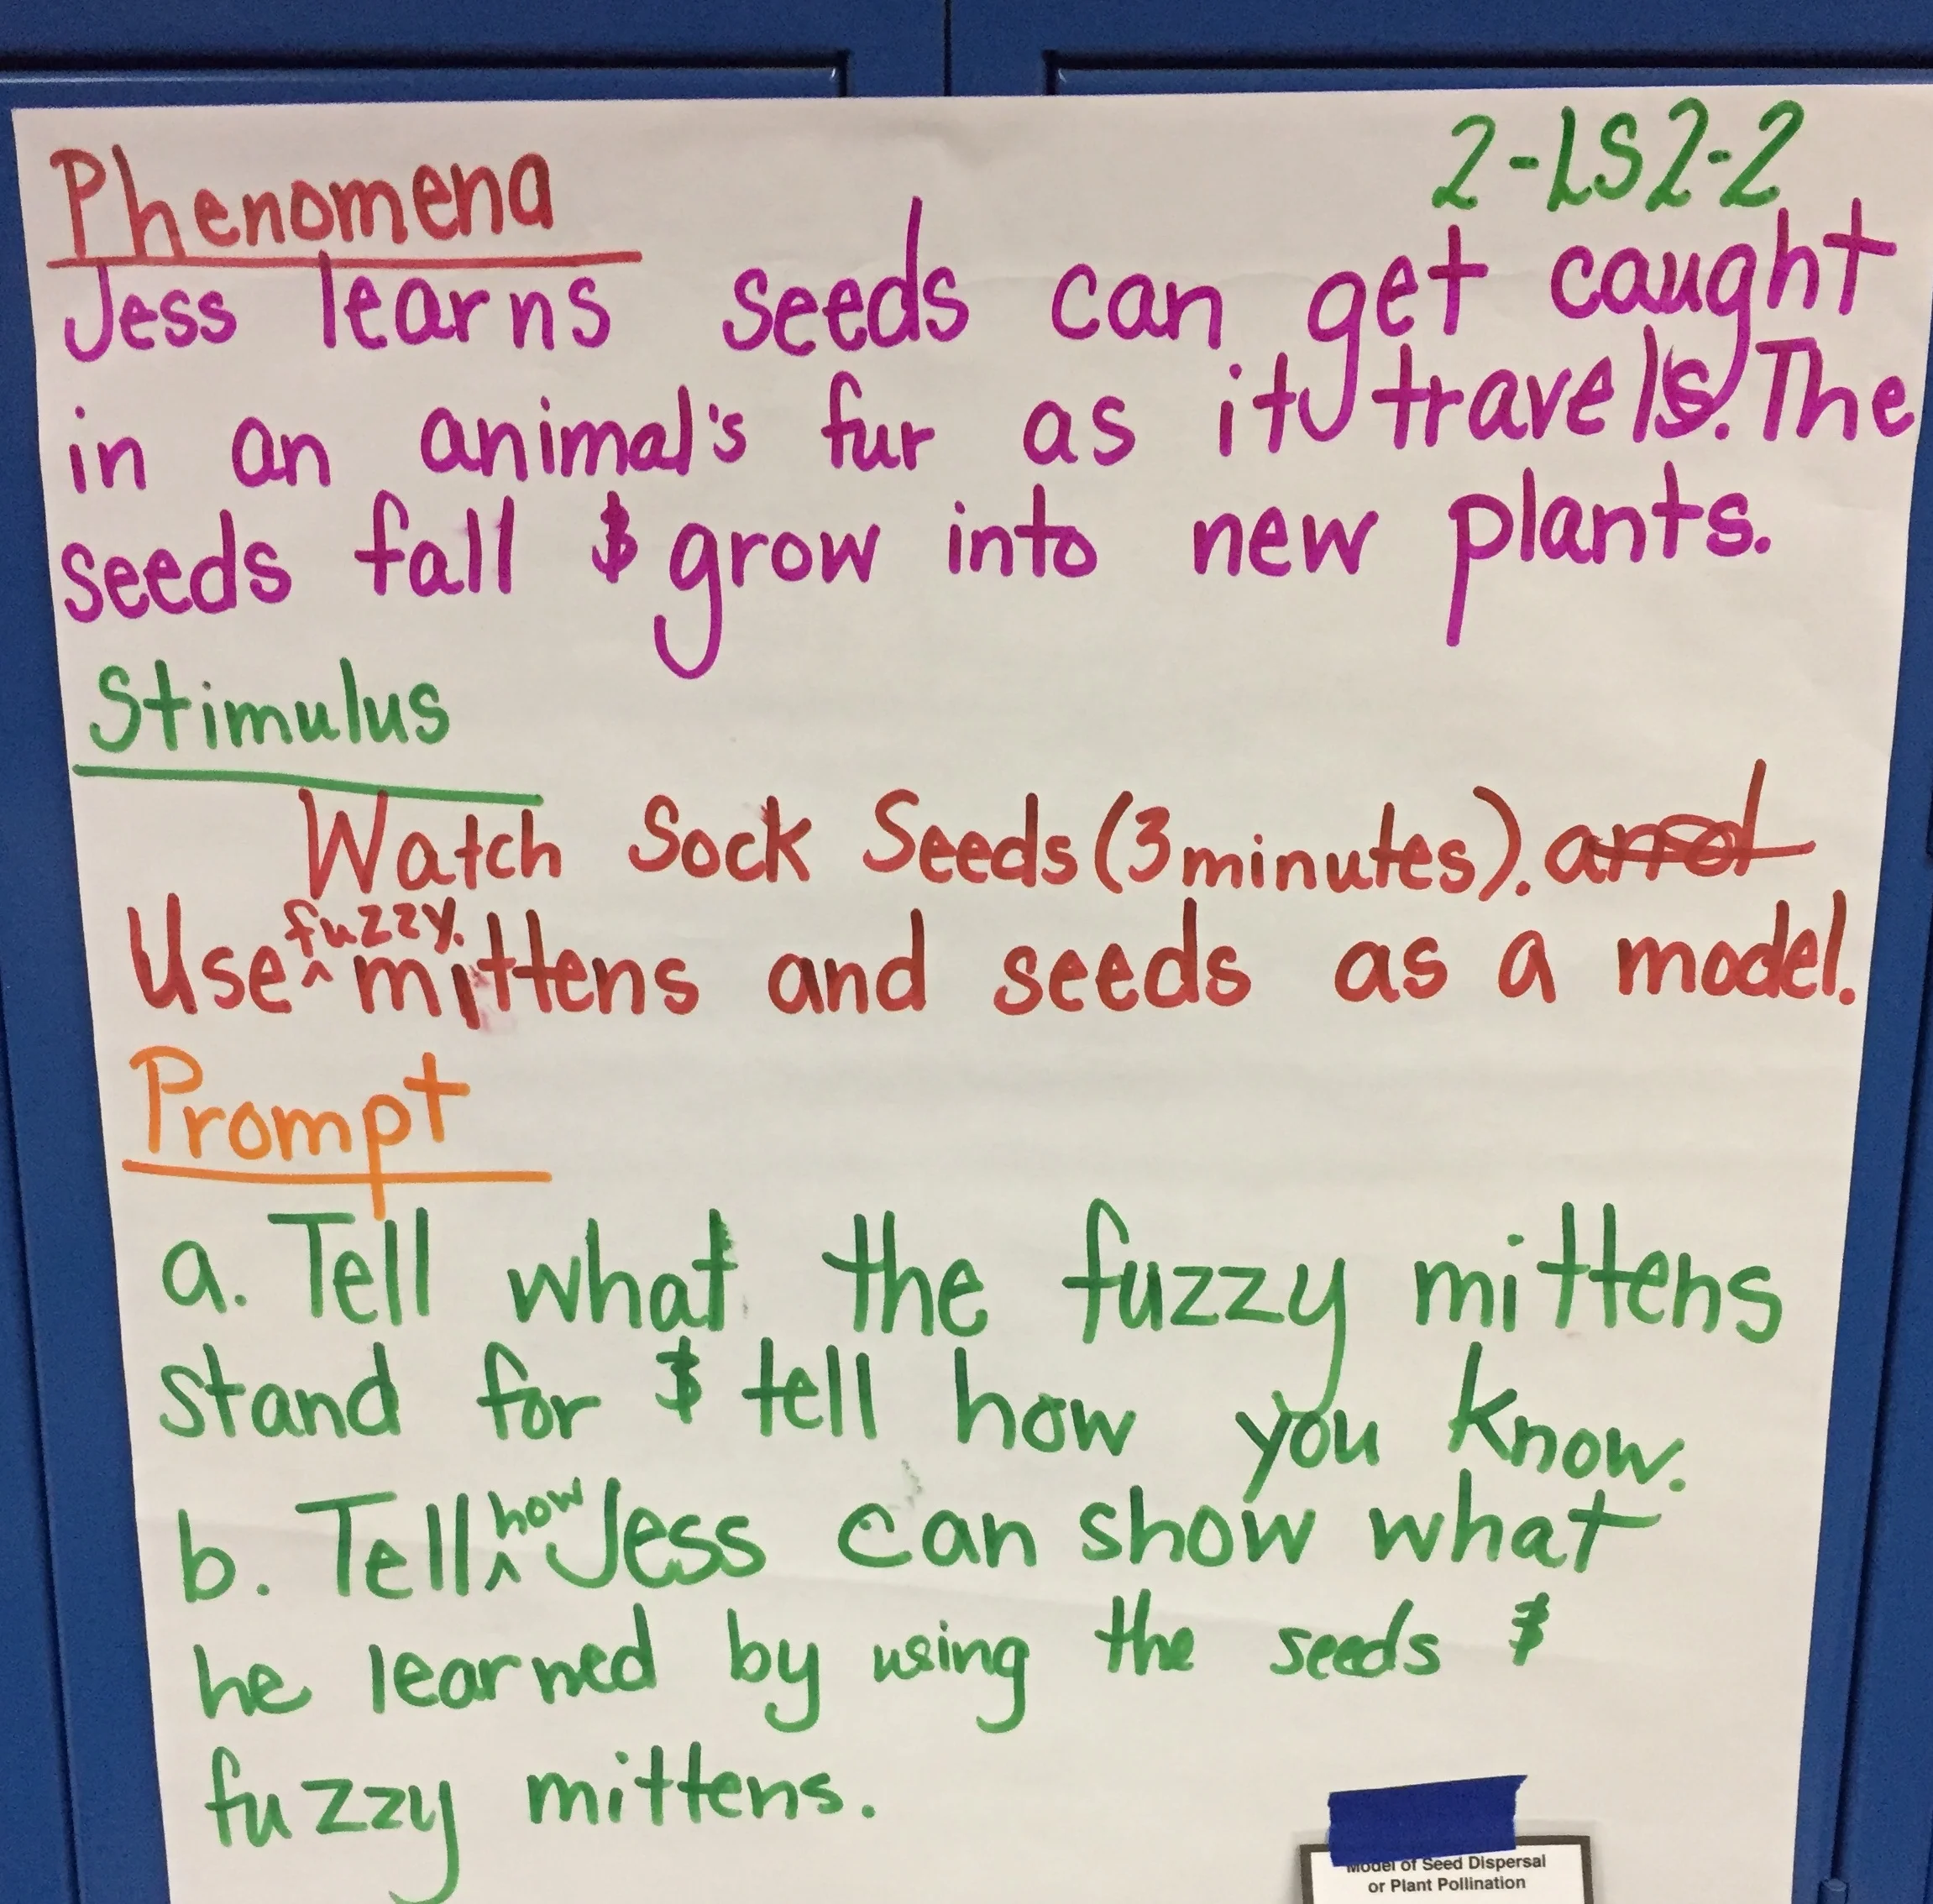 2-LS2-2
Phenomena
Jess learns seeds can get caught
in an animal's fur as it travels. The
seeds fall & grow into new plants.
Stimulus
Watch Sock Seeds (3 minutes). and
Use ^ fuzzy. mittens and seeds as a model.
Prompt
a. Tell what the fuzzy mittens
stand for & tell how you know.
b. Tell ^ how Jess can show what
he learned by using the seeds &
fuzzy mittens.
Model of Seed Dispersal
or Plant Pollination